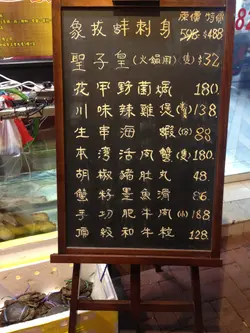 原價 特價
象拔蚌刺身 598 $488
聖子皇(火鍋用)(隻)$32
花甲野菌煱 180.
川味辣雞煲(窩)138.
生串海蝦(份)88.
本湾活肉蟹(隻)180.
胡椒蹄肚丸 48.
蟹籽墨魚滑 86.
手切肥牛肉(小)188
和牛粒 128.